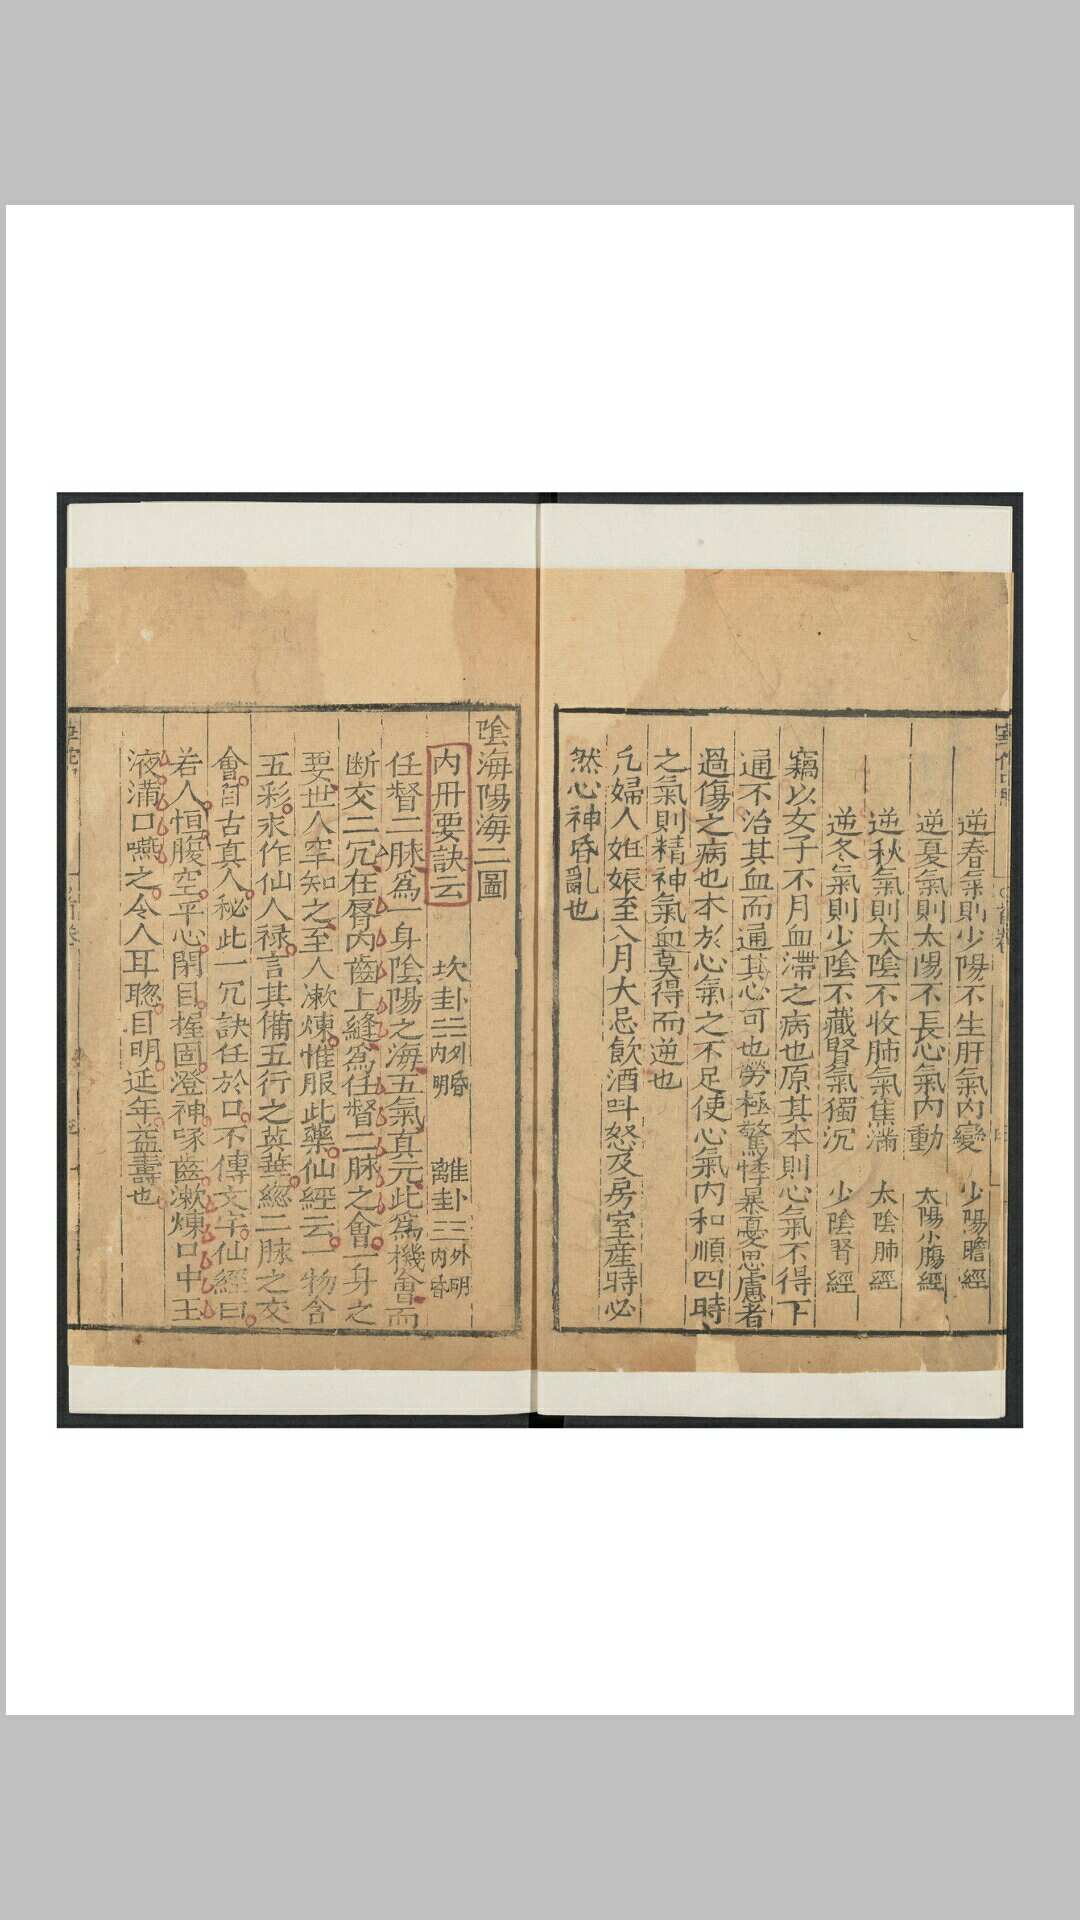 逆春氣則少陽不生肝氣內變 少陽膽經
逆夏氣則太陽不長心氣內動 太陽小膓經
逆秋氣則太陰不收肺氣焦滿 太陰肺經
逆冬氣則少陰不藏腎氣獨沉 少陰腎經
竊以女子不月血滯之病也原其本則心氣不得下
通不治其血而通其心可也勞極驚悸暴憂思慮者
過傷之病也本於心氣之不足使心氣內和順四時
之氣則精神氣血莫得而逆也
凡婦人姙娠至八月大忌飲酒叫怒及房室産時必
然心神昏亂也
陰海陽海二圖
內丹要訣云 坎卦☵外昏內明 離卦☲外明內昏
任督二脉爲一身陰陽之海五氣真元此爲機會而
断交二穴在唇內齒上縫爲任督二脉之會一身之
要世人罕知之至人漱煉惟服此藥仙經云一物含
五彩求作仙人禄言其備五行之英華緫二脉之交
會自古真人秘此一穴訣任於口不傳文字仙經曰
若人恒腹空平心閉目握固澄神啄齒漱煉口中玉
液滿口嚥之令人耳聦目明延年益壽也